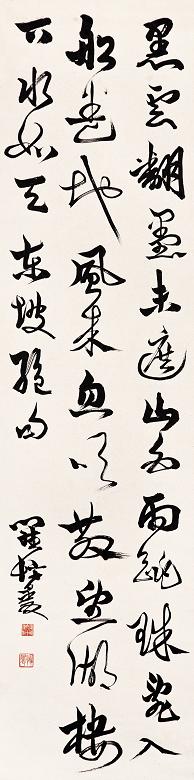 黑雲翻墨未遮山白雨跳珠亂入
船卷地風來忽吹散望湖樓
下水如天東坡絕句